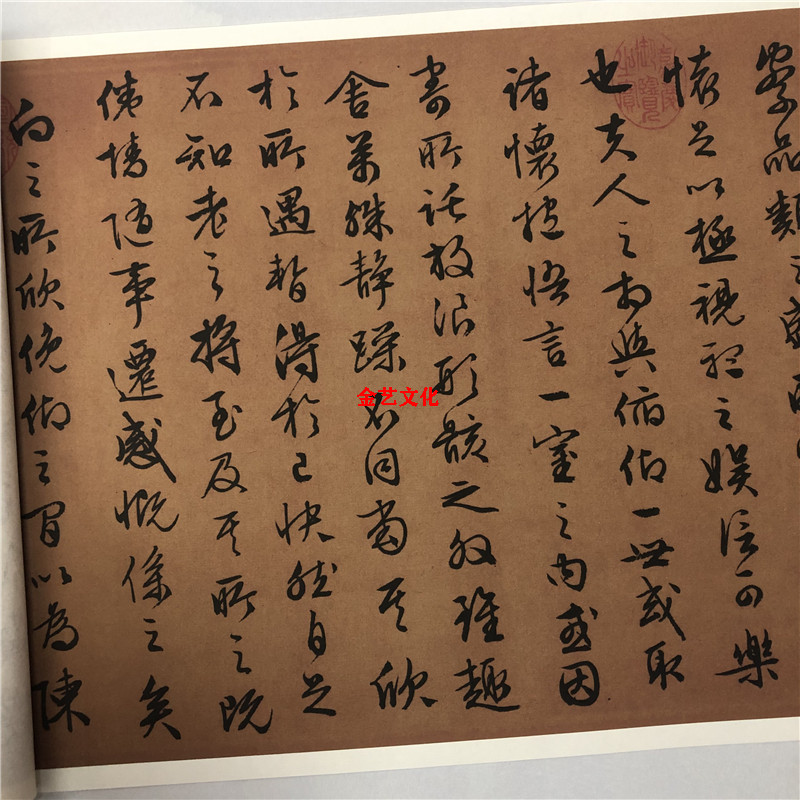 察品類之盛所
懷足以極視聽之娛信可樂
也夫人之相與俯仰一世或取
諸懷抱悟言一室之內或因
寄所託放浪形骸之外雖趣
舍萬殊靜躁不同當其欣
於所遇暫得於己快然自足
不知老之將至及其所之既
倦情隨事遷感慨係之矣
向之所欣俛仰之間以為陳
金艺文化